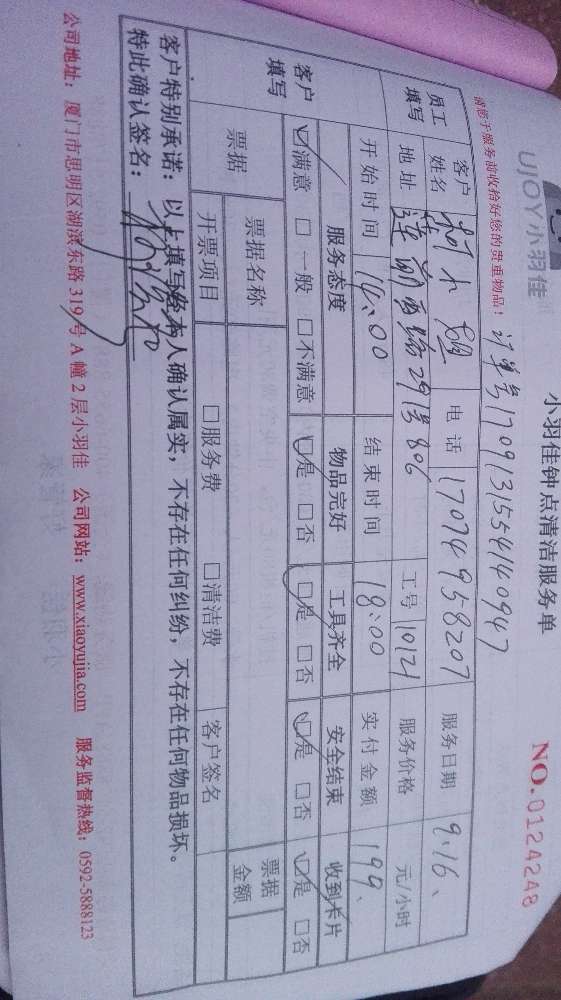 UJOY小羽佳
小羽佳钟点清洁服务单
NO.0124248
请您于服务前收拾好您的贵重物品！ 订单号1709131554140947
员工填写 客户姓名 柯小 电话 17074958207 服务日期 9.16、
地址 莲前西路291号806 工号 10121 服务价格 元/小时
开始时间 14:00 结束时间 18:00 实付金额 199、
客户填写 服务态度 物品完好 工具齐全 安全结束 收到卡片
☑满意 □一般 □不满意 ☑是 □否 ☑是 □否 ☑是 □否 ☑是 □否
票据 票据名称 票据金额
开票项目 □服务费 □清洁费 客户签名
客户特别承诺：以上填写经本人确认属实，不存在任何纠纷，不存在任何物品损坏。
特此确认签名：
公司地址：厦门市思明区湖滨东路319号A幢2层小羽佳 公司网站：www.xiaoyujia.com 服务监督热线：0592-5888123